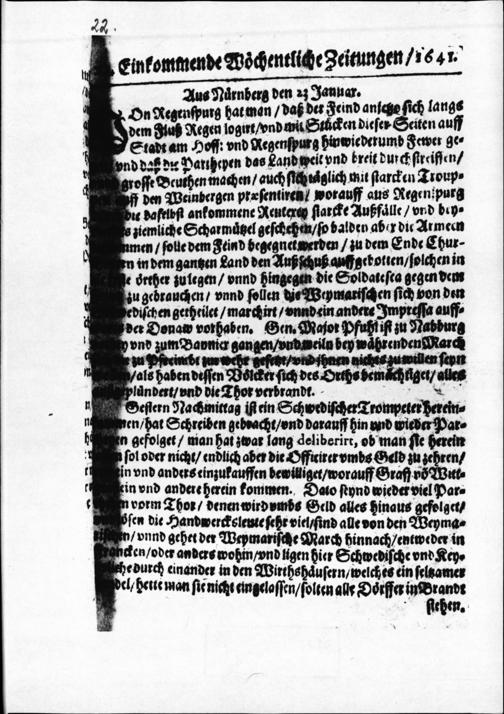 22.
Einkommende Wöchentliche Zeitungen/1641.
Aus Nürnberg den 23 Januar.
VOn Regenspurg hat man/daß der Feind anjetzo sich langs
dem Fluß Regen logirt/vnd mit Stücken dieser Seiten auff
Stadt am Hoff: vnd Regenspurg hinwiederumb Fewer ge-
vnd daß die Partheyen das Land weit vnd breit durchstreiffen/
grosse Beuthen machen/auch sich täglich mit starcken Troup-
auff den Weinbergen præsentiren/worauff aus Regenspurg
die daselbst ankommene Reuterey starcke Außfälle/vnd bey-
ziemliche Scharmützel geschehen/so balden aber die Armeen
kommen/solle dem Feind begegnet werden/zu dem Ende Chur-
in dem gantzen Land den Außschuß auffgebotten/solchen in
örther zulegen/vnnd hingegen die Soldatesca gegen dem
zu gebrauchen/vnnd sollen die Weymarischen sich von den
Schwedischen getheilet/marchirt/vnnd ein andere Impressa auff-
der Donaw vorhaben. Gen. Major Pfuhl ist zu Nabburg
vnd zum Bannier gangen/vnd weiln bey währenden March
zu Pfreimbt zur wehr gesetzt/vnd ihnen nichts zu willen seyn
/als haben dessen Völcker sich des Orths bemächtiget/alles
geplündert/vnd die Thor verbrandt.
Gestern Nachmittag ist ein Schwedischer Trompeter herein-
kommen/hat Schreiben gebracht/vnd darauff hin vnd wieder Par-
gefolget/man hat zwar lang deliberirt, ob man sie herein
sol oder nicht/endlich aber die Officirer vmbs Geld zu zehren/
ein vnd anders einzukauffen bewilliget/worauff Graff võ Witt-
ein vnd andere herein kommen. Dato seynd wieder viel Par-
vorm Thor/denen wird vmbs Geld alles hinaus gefolget/
lösen die Handwercksleute sehr viel/sind alle von den Weyma-
rischen/vnnd gehet der Weymarische March hinnach/entweder in
Francken/oder anders wohin/vnd ligen hier Schwedische vnd Key-
durch einander in den Wirthshäusern/welches ein seltzamer
/hette man sie nicht eingelassen/solten alle Dörffer in Brandt
stehen.